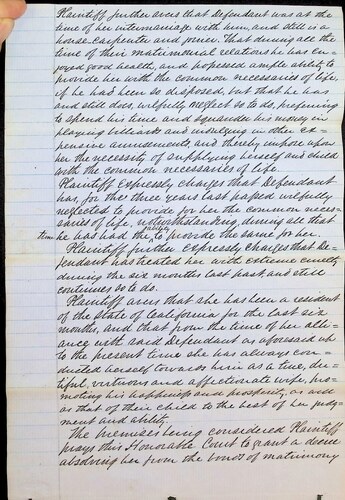 Plaintiff further avers that Defendant was at the
time of her intermarriage with him, and still is a
house-carpenter and joiner. That during all the
time of their matrimonial relations he has en-
joyed good health, and possessed ample ability to
provide her with the common necessaries of life,
if he had been so disposed, but that he has
and still does, wilfully neglect so to do, preferring
to spend his time and squander his money in
playing billiards and indulging in other ex-
pensive amusements, and thereby impose upon
her the necessity of supplying herself and child
with the common necessaries of life.
Plaintiff expressly charges that Defendant
has, for the three years last passed wilfully
neglected to provide for her the common neces-
saries of life, notwithstanding, during all that
time he has had the ability to provide the same for her.
Plaintiff further expressly charges that De-
fendant has treated her with extreme cruelty
during the six months last past, and still
continues so to do.
Plaintiff avers that she has been a resident
of the State of California for the last six
months, and that from the time of her alli-
ance with said Defendant as aforesaid up
to the present time she has always con-
ducted herself towards him as a true, du-
tiful, virtuous and affectionate wife, pro-
moting his happiness and prosperity, as well
as that of their child to the best of her judg-
ment and ability.
The premises being considered Plaintiff
prays this Honorable Court to grant a decree
absolving her from the bonds of matrimony